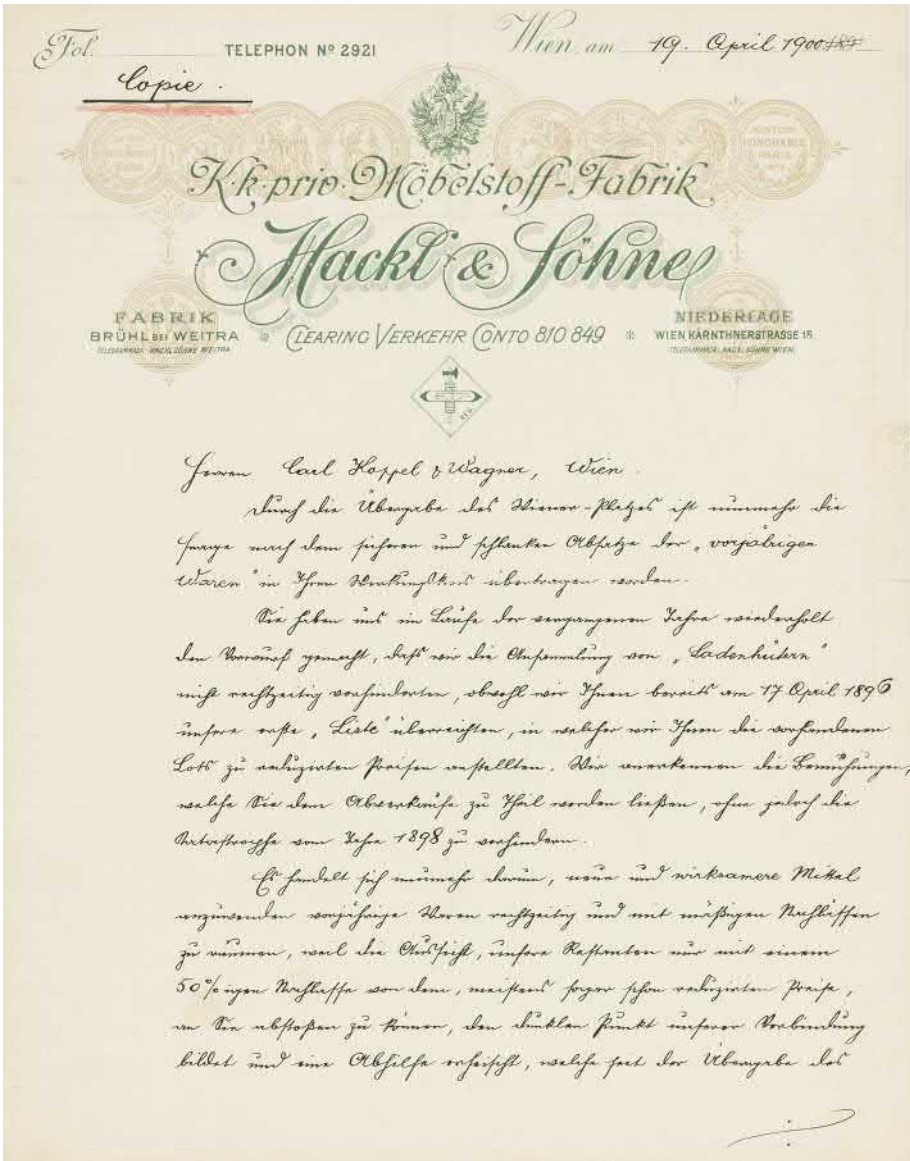 Fol.
TELEPHON Nº 2921
Wien, am 19. April 1900 189
Copie.
K. k. priv. Möbelstoff-Fabrik
Hackl & Söhne
FABRIK
BRÜHL BEI WEITRA
TELEGRAMME: HACKL SÖHNE WEITRA
CLEARING VERKEHR CONTO 810 849
NIEDERLAGE
WIEN KÄRNTHNERSTRASSE 15.
TELEGRAMME: HACKL SÖHNE WIEN
REG.
Herren Carl Koppel & Wagner, Wien.
Durch die Übergabe des Wiener-Platzes ist nunmehr die
Frage nach dem sicheren und schlanken Absatze der „vorjährigen
Waren" in Ihren Wirkungskreis übertragen worden.
Sie haben uns im Laufe der vergangenen Jahre wiederholt
den Vorwurf gemacht, dass wir die Ansammlung von „Ladenhütern"
nicht rechtzeitig verhinderten, obwohl wir Ihnen bereits am 17 April 1896
unsere erste „Liste" überreichten, in welcher wir Ihnen die vorhandenen
Lots zu reduzirten Preisen anstellten. Wir anerkennen die Bemühungen,
welche Sie dem Abverkaufe zu Theil werden ließen, ohne jedoch die
Katastrophe vom Jahre 1898 zu verhindern.
Es handelt sich nunmehr darum, neue und wirksamere Mittel
anzuwenden vorjährige Waren rechtzeitig und mit mäßigen Nachlässen
zu räumen, weil die Aussicht, unsere Restanten nur mit einem
50%igen Nachlasse von dem, meistens sogar schon reduzirten Preise,
an Sie abstoßen zu können, den dunklen Punkt unserer Verbindung
bildet und eine Abhilfe erheischt, welche seit der Übergabe des